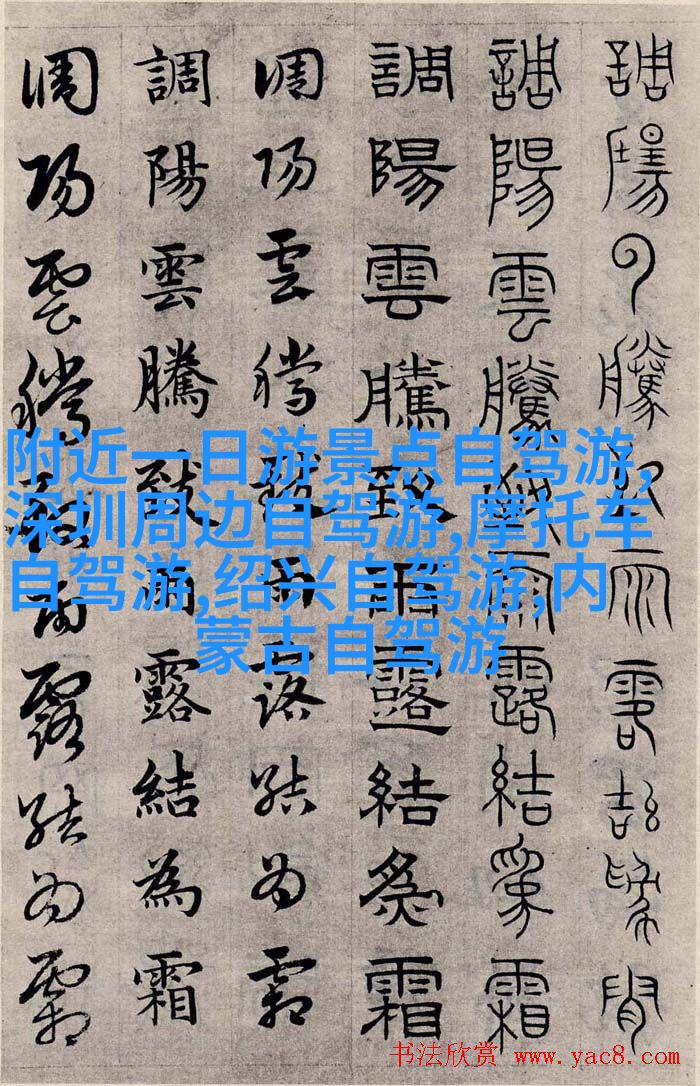 調陽雲騰致雨露結為霜
調陽雲騰致雨露結為霜
調陽雲騰致雨露結為霜
調陽雲騰致雨露結為霜
調陽雲騰致雨露結為霜
調陽雲騰致雨露結為霜
附近一日游景点自驾游,
深圳周边自驾游,摩托车
自驾游,绍兴自驾游,内
蒙古自驾游
书法欣赏 www.yac8.com